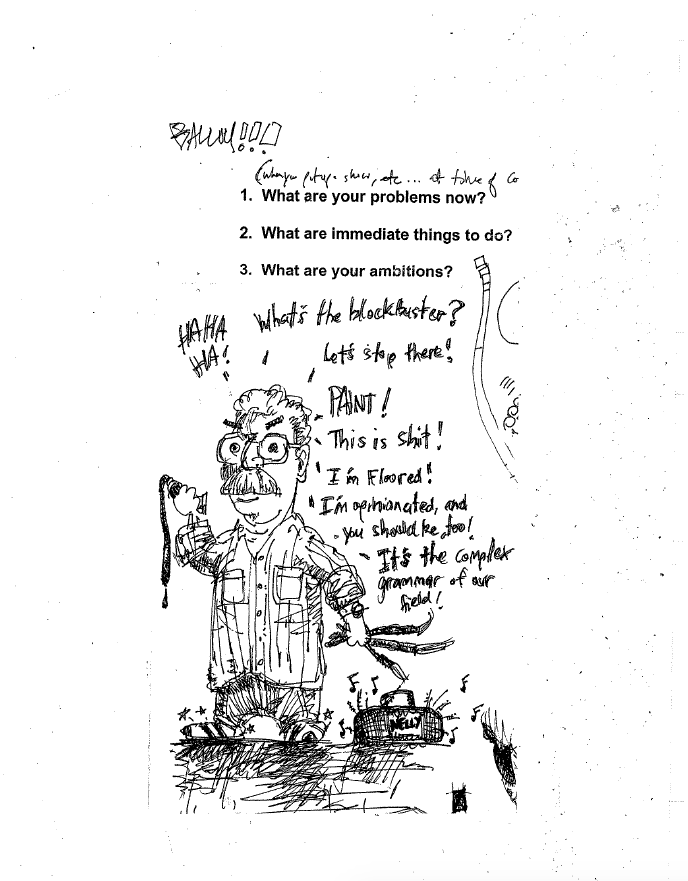 etc...
1. What are your problems now?
2. What are immediate things to do?
3. What are your ambitions?
HAHA
HA!
What's the blockbuster?
Let's stop there!
PAINT!
This is shit!
I'm Floored!
I'm opinionated, and
you should be, too!
It's the complex
grammar of our
field!
NELLY